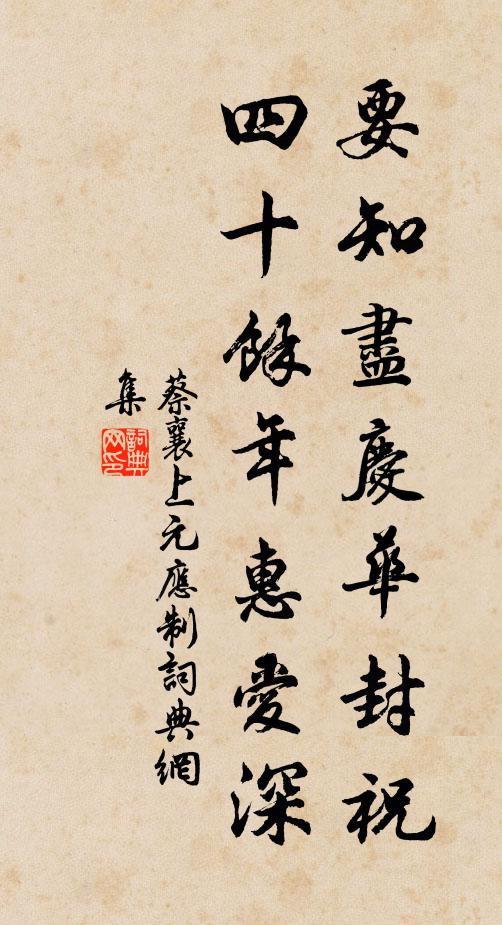 要知盡慶華封祝
四十餘年惠愛深
蔡襄上元應制詞典網
集
詞典
网印